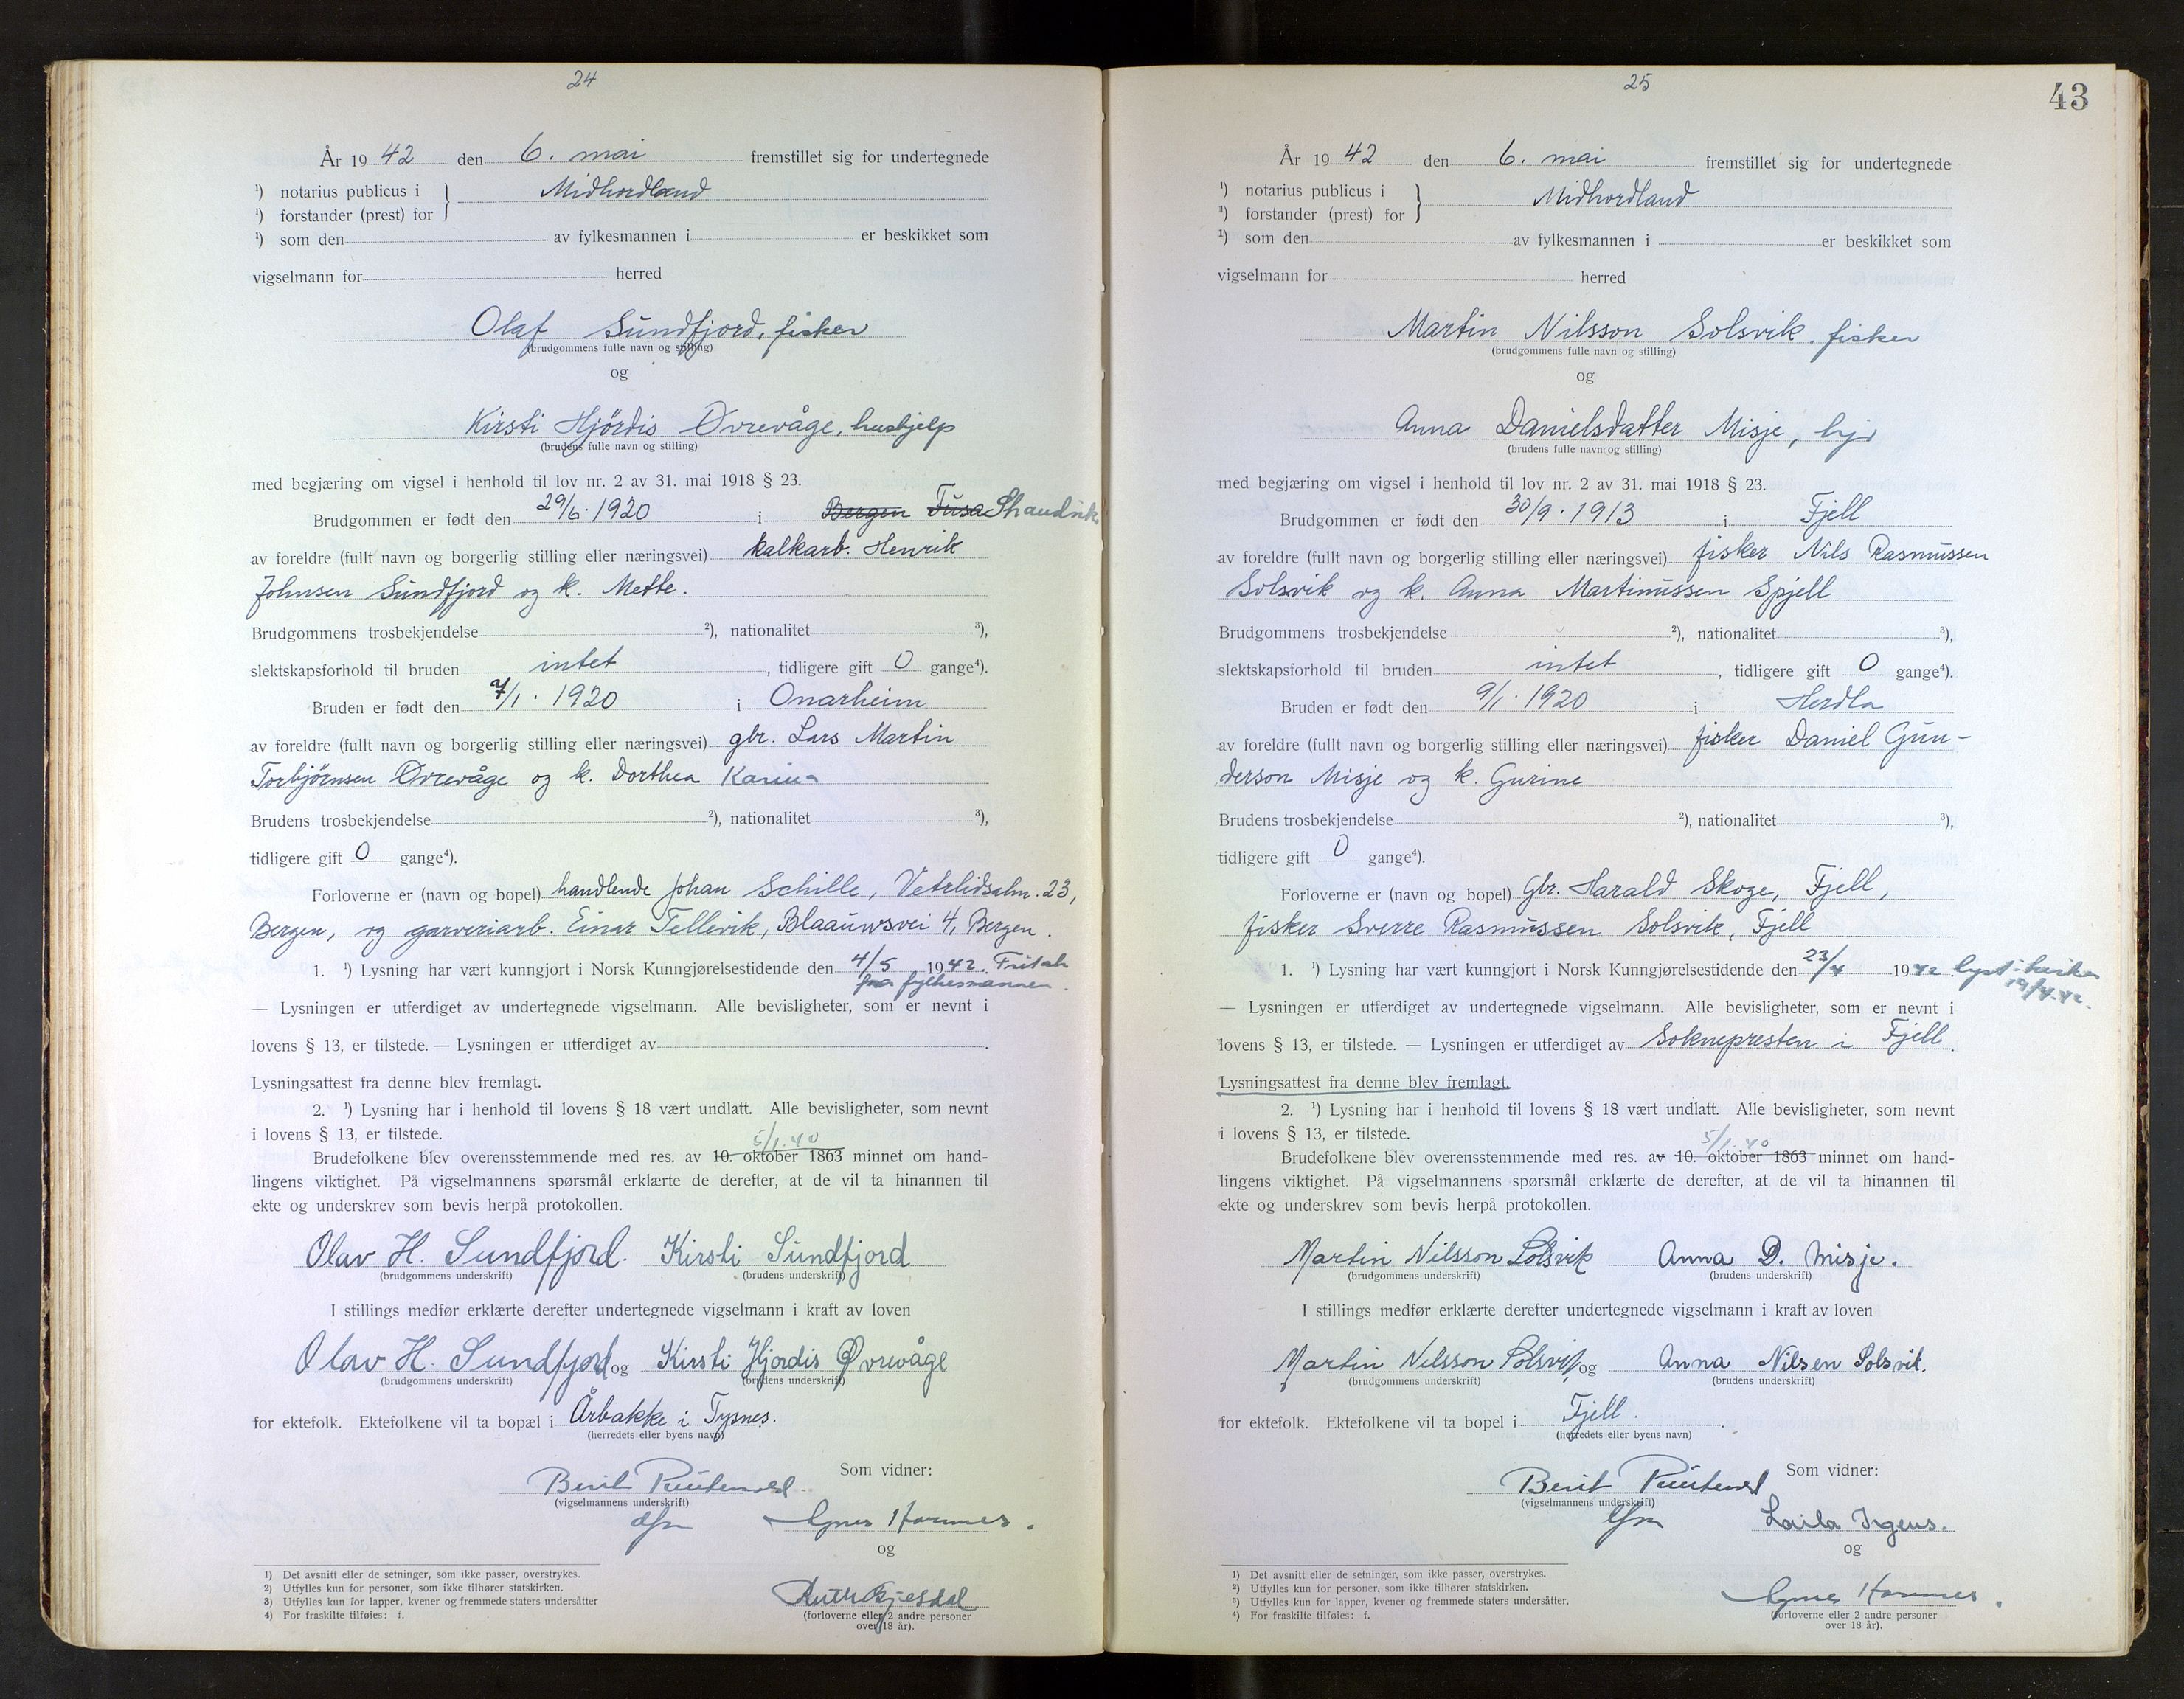 24
År 1942 den 6. mai fremstillet sig for undertegnede
¹) notarius publicus i } Midhordland
¹) forstander (prest) for
¹) som den av fylkesmannen i er beskikket som
vigselmann for herred
Olaf Sundfjord, fisker
(brudgommens fulle navn og stilling)
og
Kirsti Hjördis Øvrevåge, hushjelp
(brudens fulle navn og stilling)
med begjæring om vigsel i henhold til lov nr. 2 av 31. mai 1918 § 23.
Brudgommen er født den 29/6. 1920 i Bergen Fusa Strandvik
av foreldre (fullt navn og borgerlig stilling eller næringsvei) kalkarb. Henrik
Johnsen Sundfjord og k. Mette.
Brudgommens trosbekjendelse ²), nationalitet ³),
slektskapsforhold til bruden intet, tidligere gift 0 gange⁴).
Bruden er født den 7/1. 1920 i Onarheim
av foreldre (fullt navn og borgerlig stilling eller næringsvei) gbr. Lars Martin
Torbjørnsen Øvrevåge og k. Dorthea Karina
Brudens trosbekjendelse ²), nationalitet ³),
tidligere gift 0 gange⁴).
Forloverne er (navn og bopel) handlende Johan Schille, Vetrlidsalm. 23,
Bergen, og garveriarb. Einar Tellevik, Blaauwsvei 4, Bergen.
1. ¹) Lysning har vært kunngjort i Norsk Kunngjørelsestidende den 4/5 1942. Fritak
fra fylkesmannen.
— Lysningen er utferdiget av undertegnede vigselmann. Alle bevisligheter, som er nevnt i
lovens § 13, er tilstede. — Lysningen er utferdiget av .
Lysningsattest fra denne blev fremlagt.
2. ¹) Lysning har i henhold til lovens § 18 vært undlatt. Alle bevisligheter, som nevnt
i lovens § 13, er tilstede.
5/1.40
Brudefolkene blev overensstemmende med res. av 10. oktober 1863 minnet om hand-
lingens viktighet. På vigselmannens spørsmål erklærte de derefter, at de vil ta hinannen til
ekte og underskrev som bevis herpå protokollen.
Olav H. Sundfjord. Kirsti Sundfjord
(brudgommens underskrift) (brudens underskrift)
I stillings medfør erklærte derefter undertegnede vigselmann i kraft av loven
Olav H. Sundfjord og Kirsti Hjordis Øvrevåge
(brudgommens underskrift) (brudens underskrift)
for ektefolk. Ektefolkene vil ta bopæl i Årbakke i Tysnes.
(herredets eller byens navn)
Som vidner:
Berit
(vigselmannens underskrift)
Agnes Hammes.
og
Ruth Gjesdal
(forloverne eller 2 andre personer
over 18 år).
1) Det avsnitt eller de setninger, som ikke passer, overstrykes.
2) Utfylles kun for personer, som ikke tilhører statskirken.
3) Utfylles kun for lapper, kvener og fremmede staters undersåtter
4) For fraskilte tilføies: f.
25
43
År 1942 den 6. mai fremstillet sig for undertegnede
¹) notarius publicus i } Midhordland
¹) forstander (prest) for
¹) som den av fylkesmannen i er beskikket som
vigselmann for herred
Martin Nilsson Solsvik, fisker
(brudgommens fulle navn og stilling)
og
Anna Danielsdatter Misje,
(brudens fulle navn og stilling)
med begjæring om vigsel i henhold til lov nr. 2 av 31. mai 1918 § 23.
Brudgommen er født den 30/9. 1913 i Fjell
av foreldre (fullt navn og borgerlig stilling eller næringsvei) fisker Nils Rasmussen
Solsvik og k. Anna Martinussen Spjell
Brudgommens trosbekjendelse ²), nationalitet ³),
slektskapsforhold til bruden intet, tidligere gift 0 gange⁴).
Bruden er født den 9/1. 1920 i Herdla
av foreldre (fullt navn og borgerlig stilling eller næringsvei) fisker Daniel Gun-
derson Misje og k. Gurine
Brudens trosbekjendelse ²), nationalitet ³),
tidligere gift 0 gange⁴).
Forloverne er (navn og bopel) Gbr. Harald Skoge, Fjell,
fisker Sverre Rasmussen Solsvik, Fjell
1. ¹) Lysning har vært kunngjort i Norsk Kunngjørelsestidende den 23/4 1942 lyst i kirken
19/4.42.
— Lysningen er utferdiget av undertegnede vigselmann. Alle bevisligheter, som er nevnt i
lovens § 13, er tilstede. — Lysningen er utferdiget av Soknepresten i Fjell.
Lysningsattest fra denne blev fremlagt.
2. ¹) Lysning har i henhold til lovens § 18 vært undlatt. Alle bevisligheter, som nevnt
i lovens § 13, er tilstede.
5/1.40
Brudefolkene blev overensstemmende med res. av 10. oktober 1863 minnet om hand-
lingens viktighet. På vigselmannens spørsmål erklærte de derefter, at de vil ta hinannen til
ekte og underskrev som bevis herpå protokollen.
Martin Nilsson Solsvik Anna D. Misje.
(brudgommens underskrift) (brudens underskrift)
I stillings medfør erklærte derefter undertegnede vigselmann i kraft av loven
Martin Nilsson Solsvik og Anna Nilsen Solsvik.
(brudgommens underskrift) (brudens underskrift)
for ektefolk. Ektefolkene vil ta bopel i Fjell.
(herredets eller byens navn)
Som vidner:
Berit
(vigselmannens underskrift)
Laila Irgens.
og
Agnes Hammes.
(forloverne eller 2 andre personer
over 18 år).
1) Det avsnitt eller de setninger, som ikke passer, overstrykes.
2) Utfylles kun for personer, som ikke tilhører statskirken.
3) Utfylles kun for lapper, kvener og fremmede staters undersåtter.
4) For fraskilte tilføies: f.